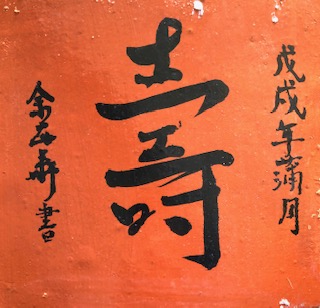 戊戌年蒲月
壽
余 書